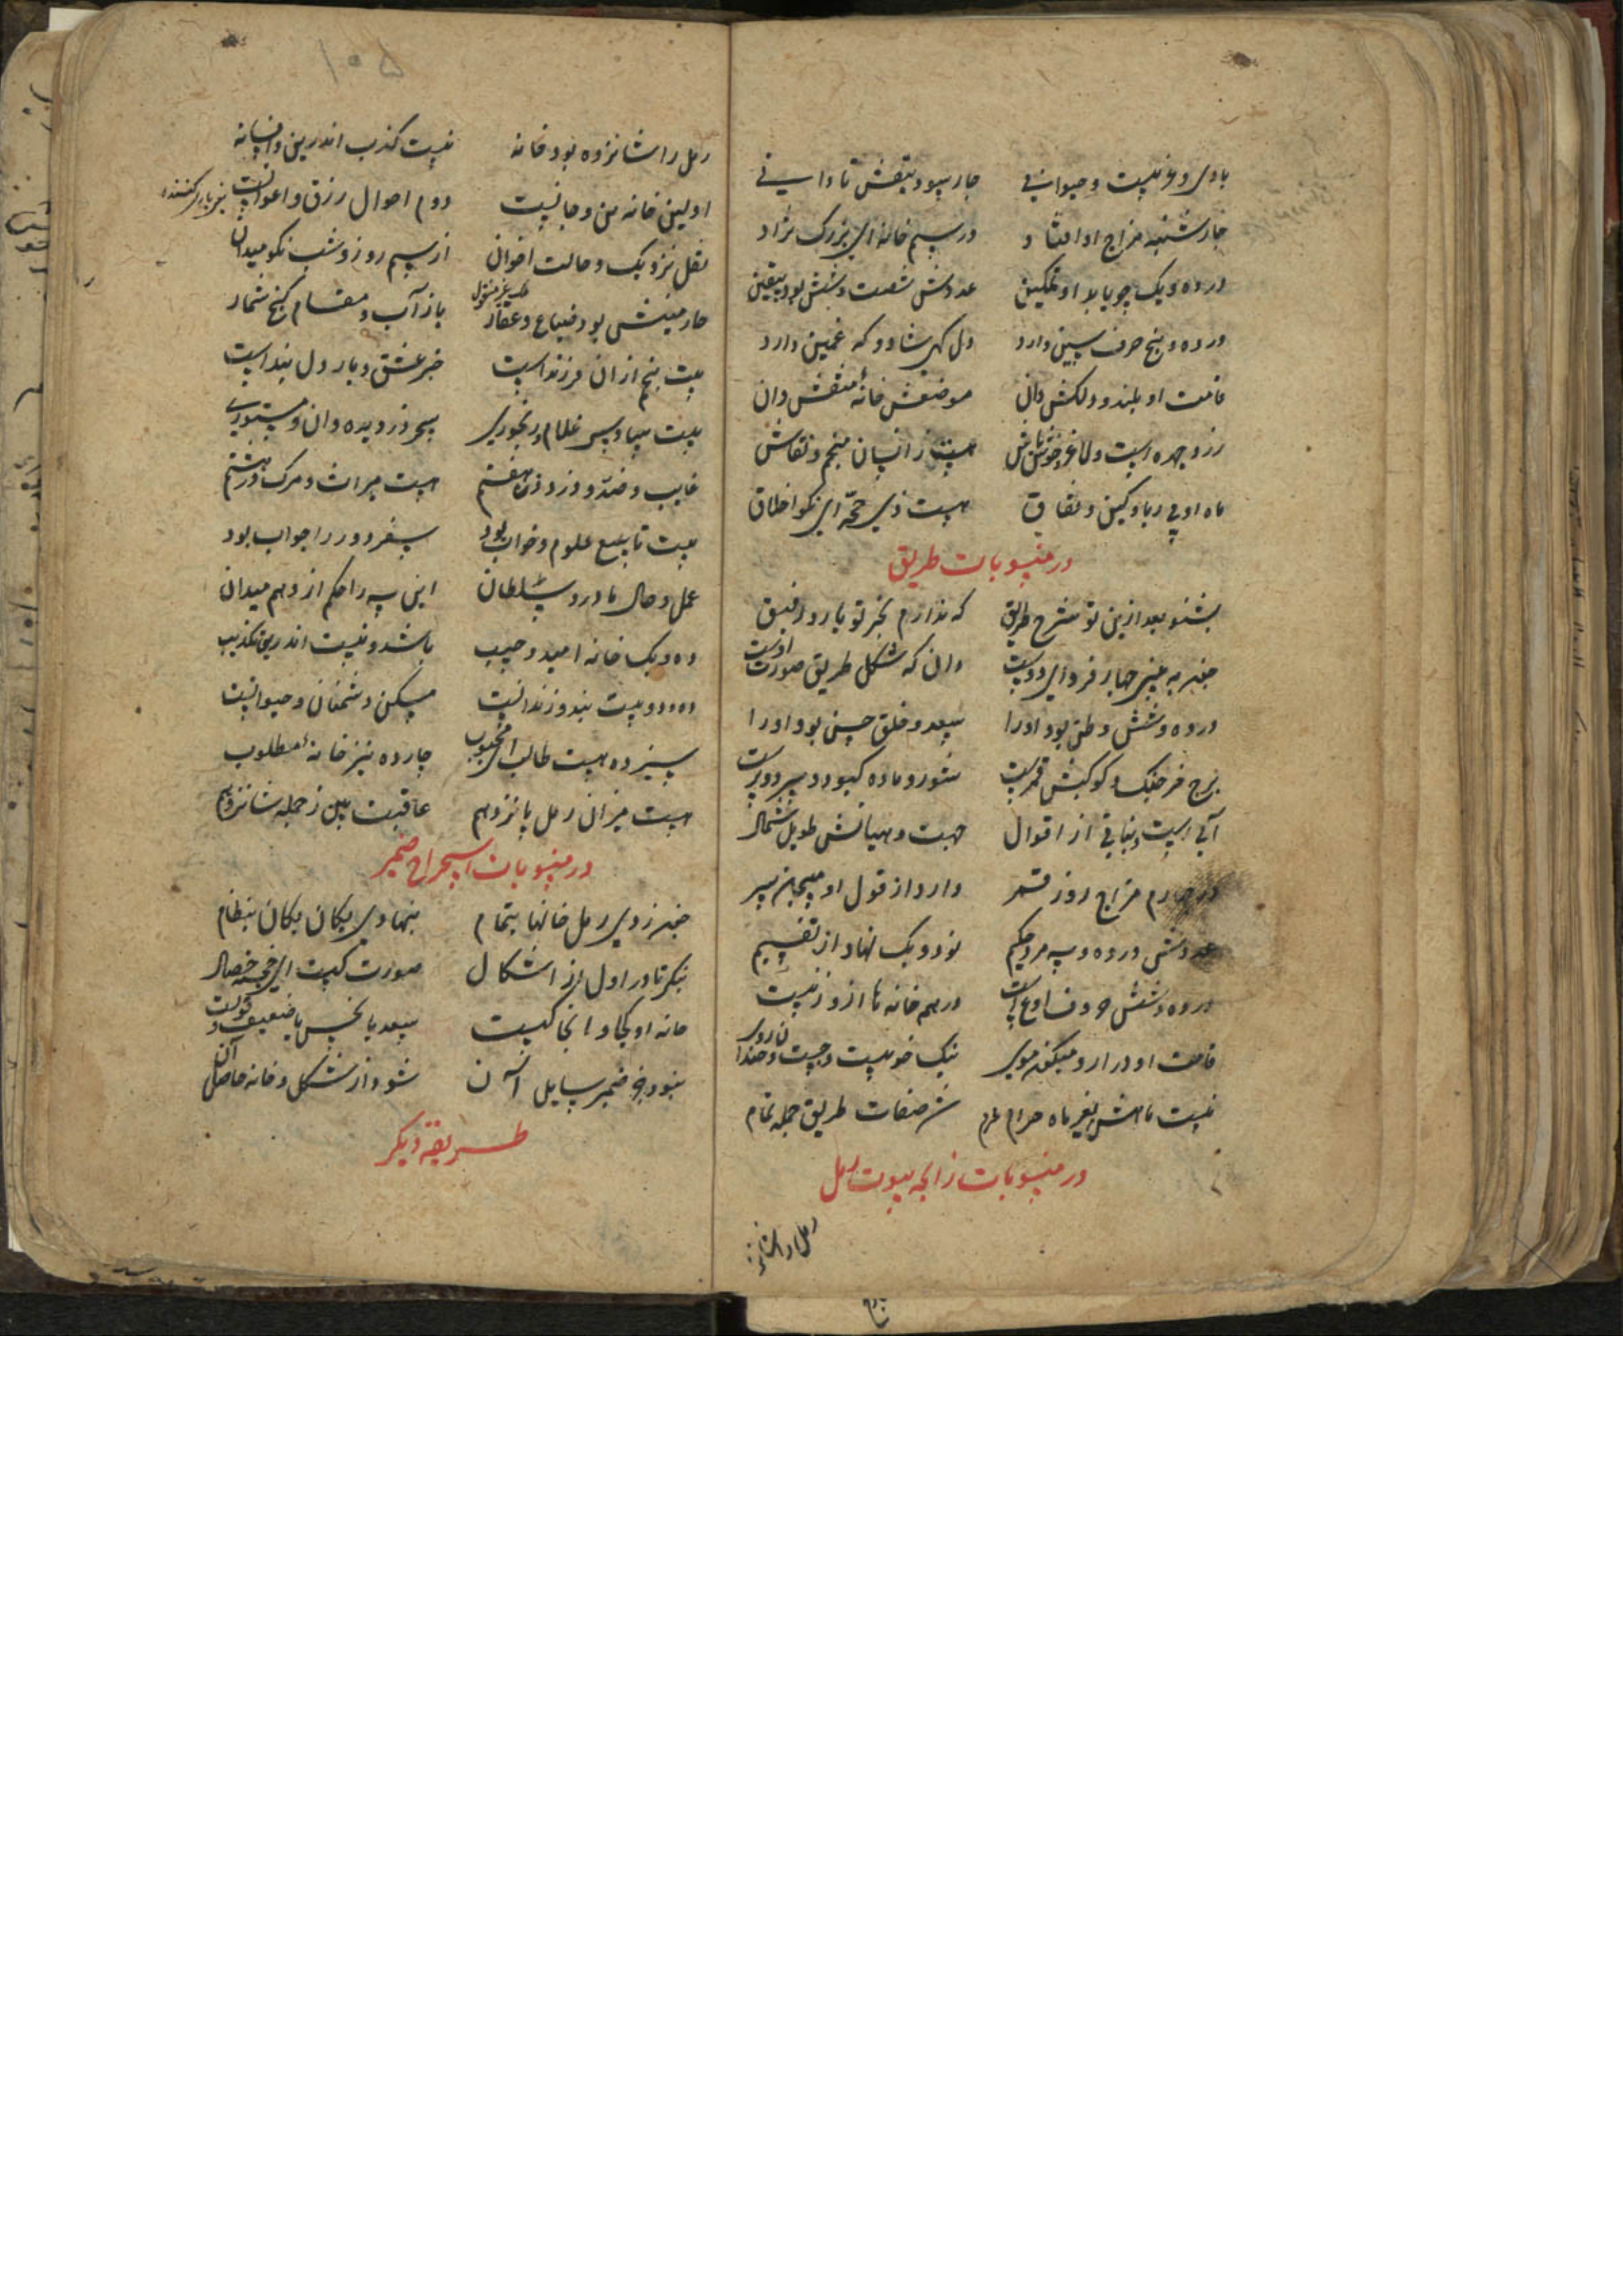 بادی و غربیست و حیوانی چار سو دستقش تا دانی
چارشنبه مزاج او افتاد در سیم خانه ای بزرک نژاد
در ده و یک چو یابد او تمکین عددش شصت و شش بود بیقین
در ده و پنج حرف سین دارد دل کهی شاد و که غمین دارد
قامت او بلند و دلکش دان موضعش خانهٔ منقش دان
زرد چهره است و لاغر و خوش باش هست ز انسان منجم و نقاش
ماه او پی ریا و کین و نفاق هست ذی حجه ای نکو اخلاق
در منسوبات طریق
بشنو بعد ازین تو شرح طریق که ندارم بجز تو یار و رفیق
چند به چار فرد ای دوست دان که شکل طریق صورت اوست
در ده و شش وطن بود او را سعد و خلق حسن بود او را
برج خرچنک و کوکبش قمرست
آبی است و نباتی از اقوال جهت و میانش طویل شمال
در چهارم مزاج روز قمر دارد از قول او
عددش در ده و سه مرد حکیم نود و یک نهاد از تقسیم
در ده و شش
قامت او دراز و میکون موی نیک خویست و چست و خندان روی
نیست ماهش بغیر ماه حرام شد صفات طریق جمله تمام
در منسوبات زایجه بیوت رمل
رمل را شانزده
۱۰۵
رمل را شانزده بود خانه نیست کذب اندرین و افسانه
اولین خانه تن و جانست دوم احوال رزق و اعوانست
نقل نزدیک و حالت اخوان از سیم روز و شب نکو میدان
چارمینش بود ضیاع و عقار باز آب و مقام کنج شمار
بیت پنجم از آن فرزند است خبر عشق و یار دلبند است
بیت سادس غلام و رنجوری سحر و دزدیده دان و مستوری
غایب و ضد و دزد و زن هفتم هست میراث و مرک در هشتم
بیت تاسع علوم و خواب بود سفر دور را جواب بود
عمل و حال مادر و سلطان این سه را حکم از دهم میدان
ده و یک خانه امید و حبیب باشد و نیست اندرین تکذیب
ده و دو بیت بند و زندانست مسکن دشمنان و حیوانست
سیزده هست طالب ای محبوب چارده نیز خانهٔ مطلوب
هست میزان رمل پانزدهم عاقبت بین ز جمله شانزدهم
در منسوبات استخراج ضمیر
چون زدی رمل خانها بتمام بنهادی یکان یکان بنظام
بنکر تا در اول از اشکال صورت کیست ای خجسته خصال
خانه او کجا و اینجا کیست سعد یا نحس یا ضعیف و قویست
نبود جز ضمیر سایل آن شود از شکل و خانه حاصل آن
طریقه دیکر